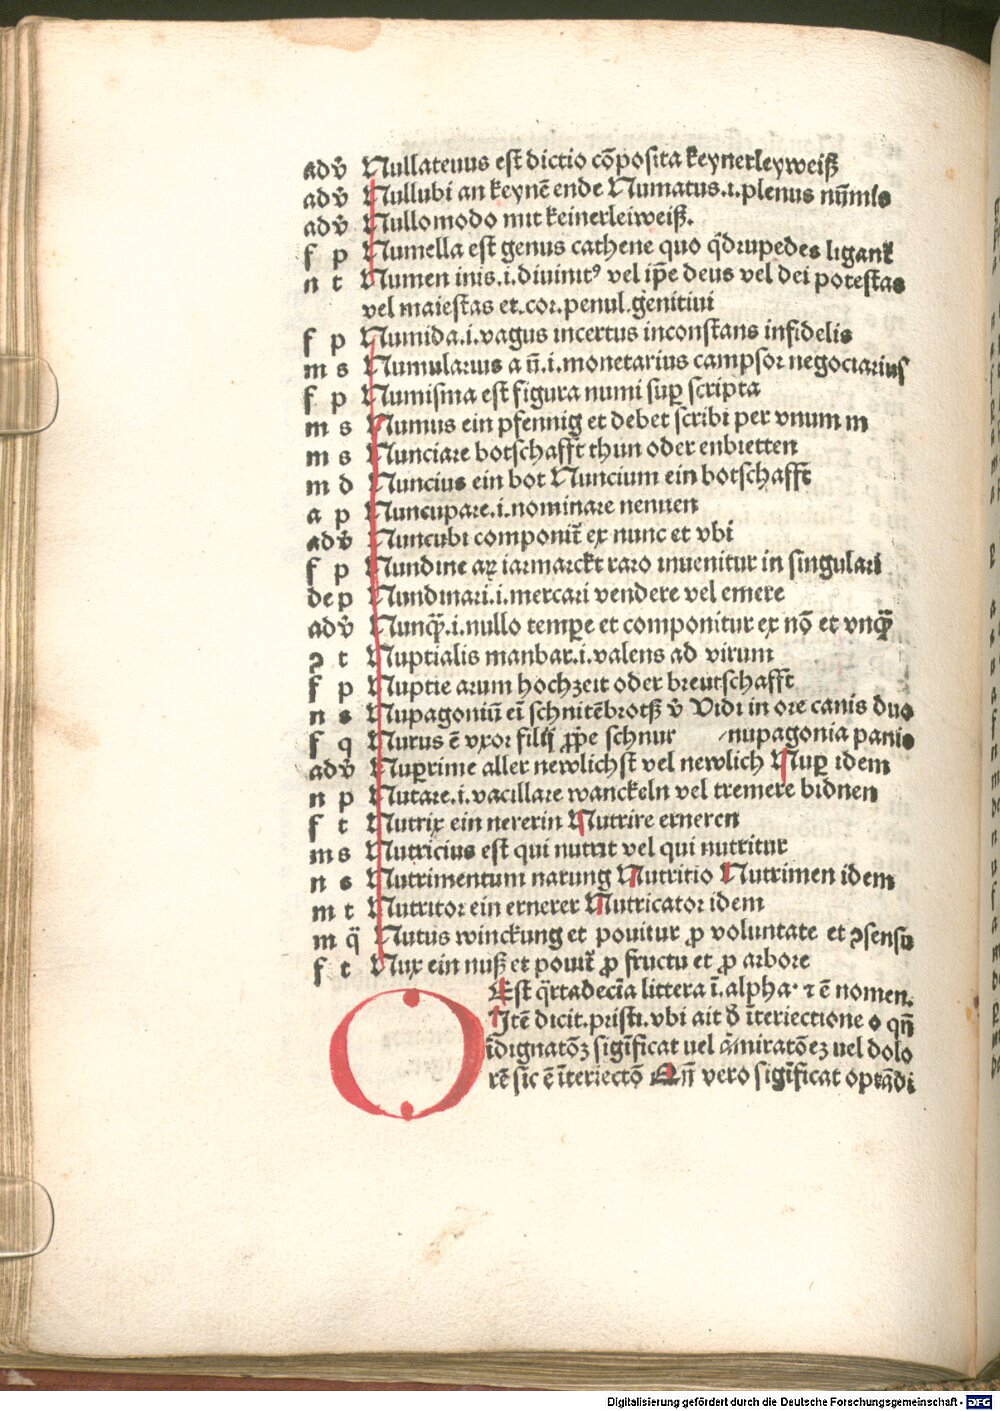 adv̄ Nullatenus est dictio cōposita keynerleyweiß
adv̄ Nullubi an keynē ende Numatus.i.plenus nūmis
adv̄ Nullomodo mit keinerleiweiß.
f p Numella est genus cathene quo q̄drupedes ligant̄
n t Numen inis.i.diuinitꝰ vel ip̄e deus vel dei potestas
vel maiestas et.cor.penul.genitiui
f p Numida.i.vagus incertus inconstans infidelis
m s Numularius a ū.i.monetarius campsor negociarius
f p Numisma est figura numi suꝑ scripta
m s Numus ein pfennig et debet scribi per vnum m
m s Nunciare botschafft thun oder enbietten
m d Nuncius ein bot Nuncium ein botschafft
a p Nuncupare.i.nominare nennen
adv̄ Nuncubi componit̄ ex nunc et vbi
f p Nundine aꝝ iarmarckt raro inuenitur in singulari
de p Nundinari.i.mercari vendere vel emere
adv̄ Nunqȝ̄.i.nullo tempe et componitur ex nō et vnqȝ̄
ꝯ t Nuptialis manbar.i.valens ad virum
f p Nuptie arum hochzeit oder breutschafft
n s Nupagoniū eī schnitēbrotß v̄ Vidi in ore canis duo
f q Nurus ē vxor filij ꝓꝓe schnur nupagonia panis
adv̄ Nuꝑrime aller newlichst vel newlich Nuꝑ idem
n p Nutare.i.vacillare wanckeln vel tremere bidnen
f t Nutrix ein nererin Nutrire erneren
m s Nutricius est qui nutrit vel qui nutritur
n s Nutrimentum narung Nutritio Nutrimen idem
m t Nutritor ein ernerer Nutricator idem
m q̄ Nutus winckung et ponitur ꝓ voluntate et ꝯsensu
f t Nux ein nuß et ponit̄ ꝓ fructu et ꝓ arbore
O Est q̄rtadecīa littera ī.alpha· ⁊ ē nomen.
Itē dicit.pristi.vbi ait ð īteriectione o qn̄
īdignatōꝫ sigīficat uel ām̄iratōeꝫ uel dolo
rē sic ē īteriectō Qn̄ vero sigīficat optādi
Digitalisierung gefördert durch die Deutsche Forschungsgemeinschaft - DFG